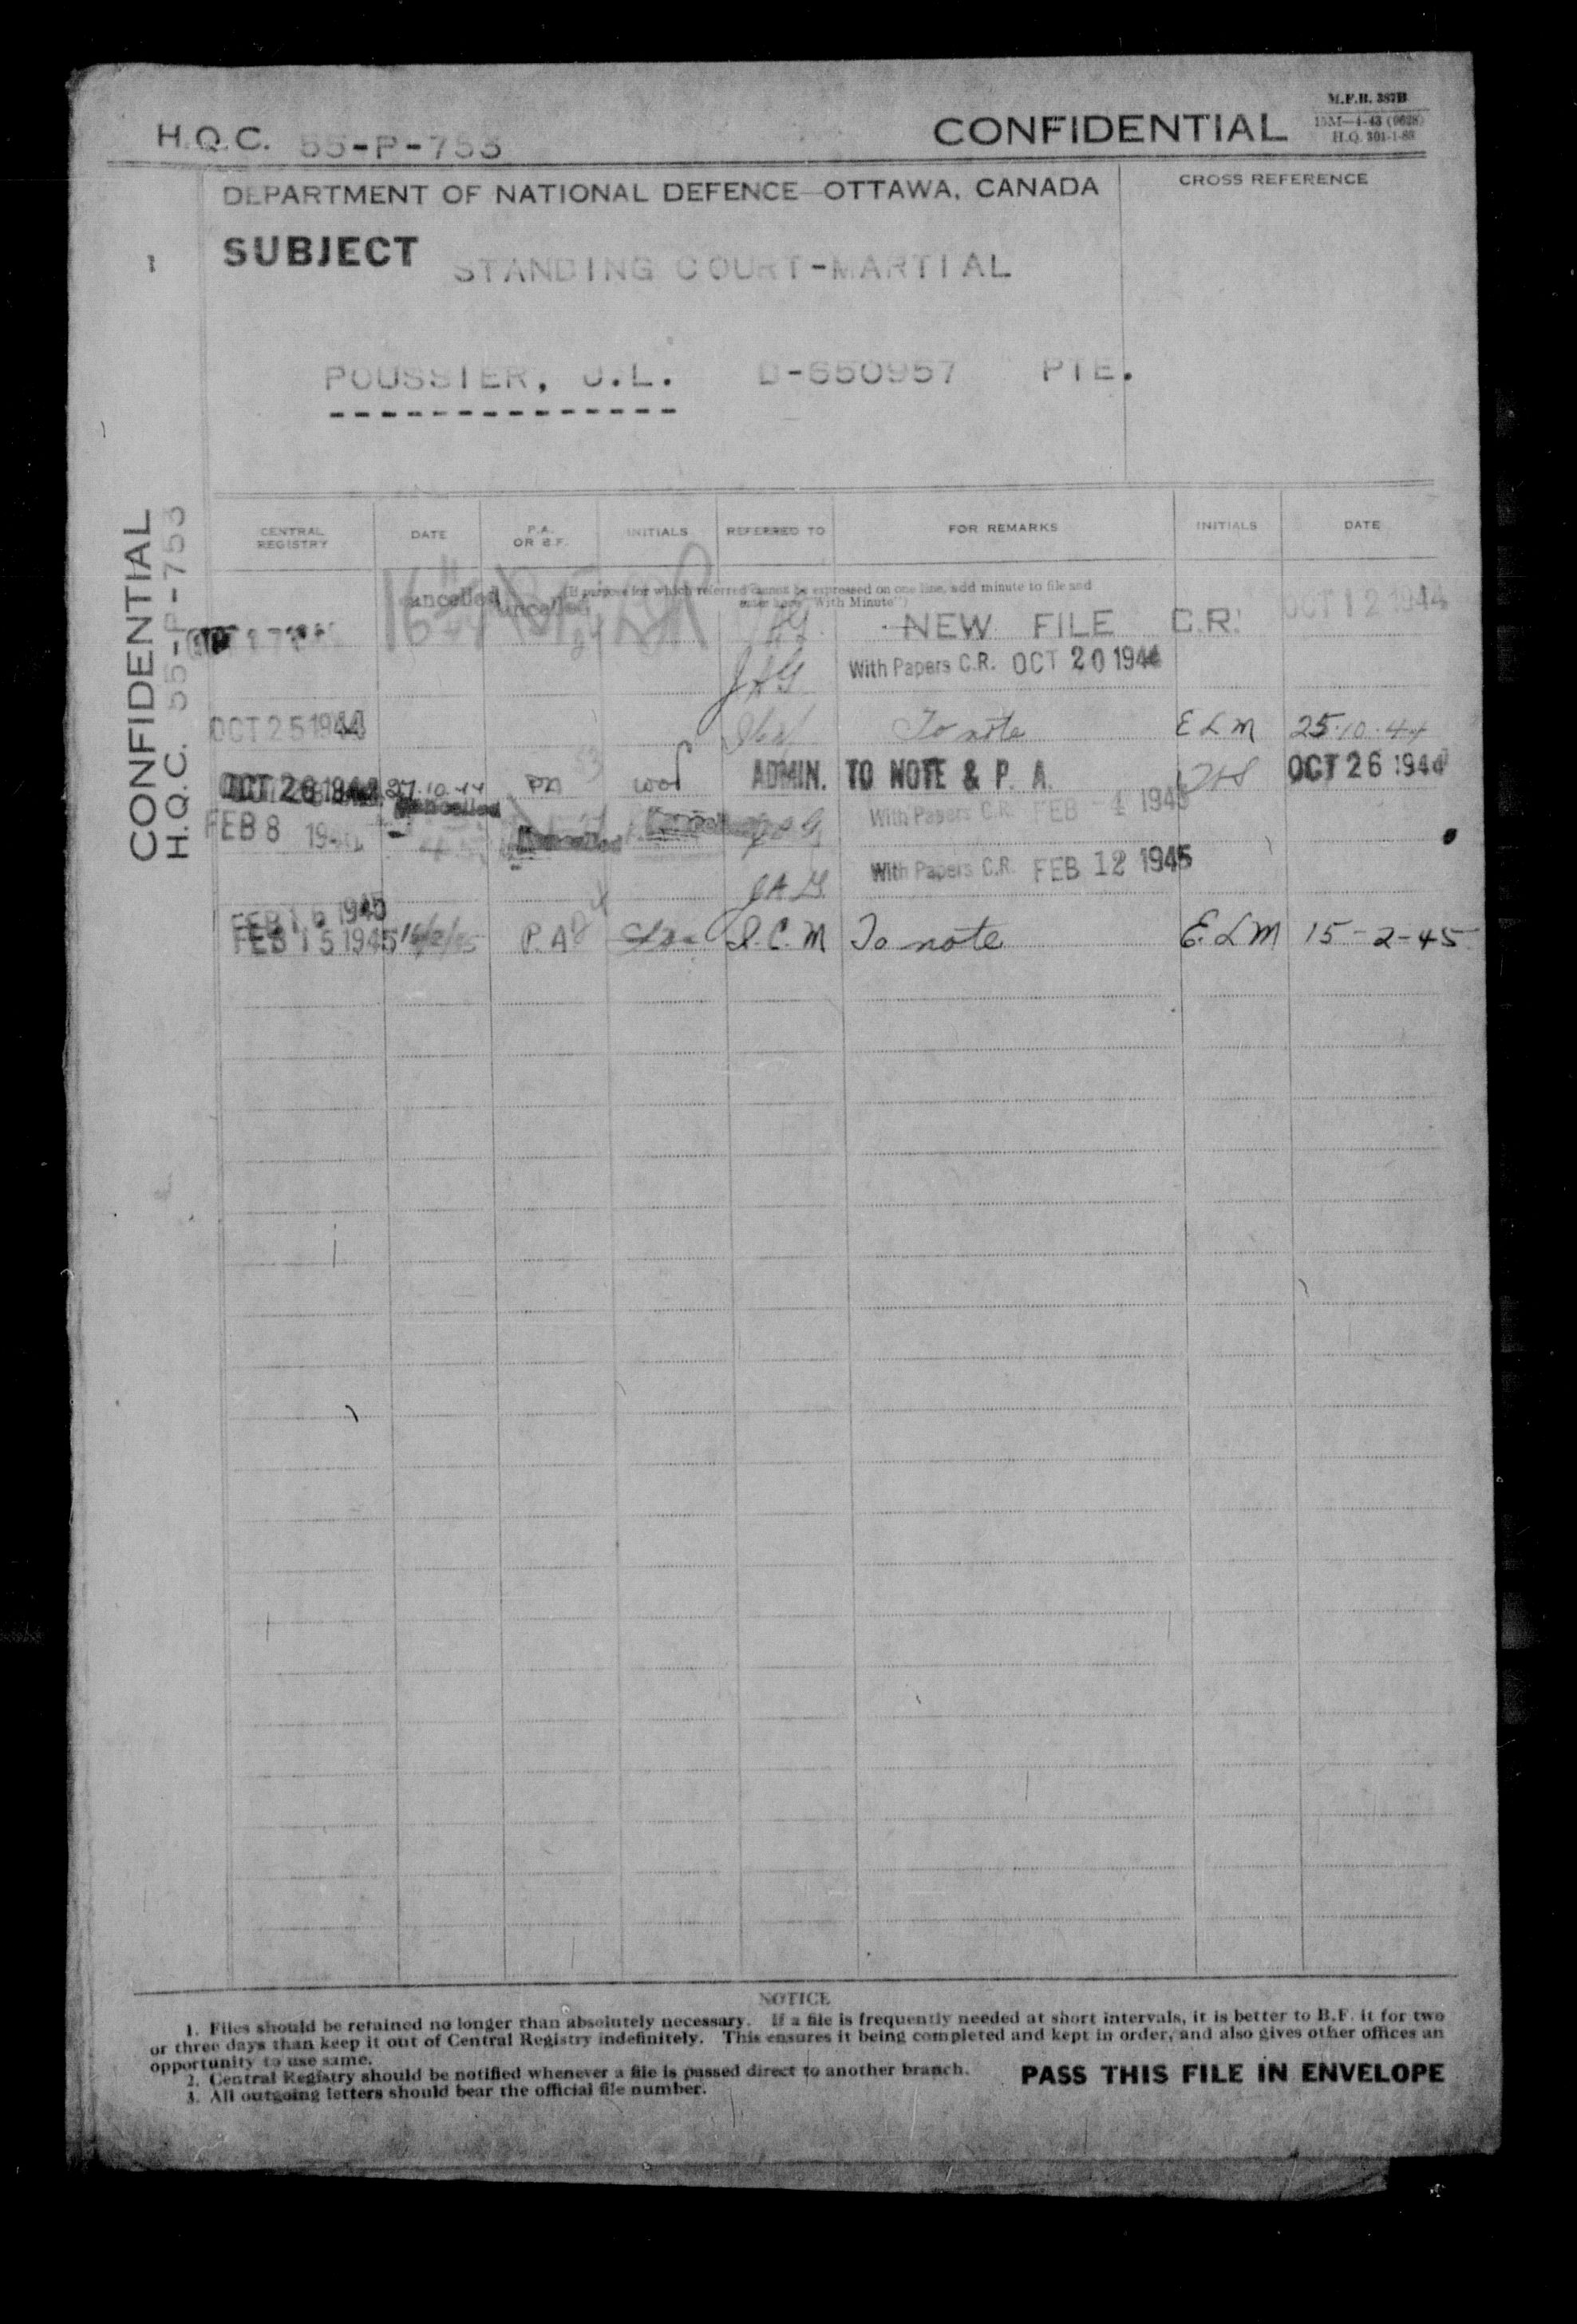 M.F.B. 387B
H.Q.C. 55-P-753
CONFIDENTIAL
15M—4-43 (9628)
H.Q. 301-1-88
DEPARTMENT OF NATIONAL DEFENCE—OTTAWA, CANADA
CROSS REFERENCE
SUBJECT STANDING COURT-MARTIAL
POUSSIER, J.L. D-650957 PTE.
CONFIDENTIAL
H.Q.C. 55-P-753
CENTRAL REGISTRY DATE P.A. OR B.F. INITIALS REFERRED TO FOR REMARKS INITIALS DATE
(If purpose for which referred cannot be expressed on one line, add minute to file and
enter here "With Minute")
Cancelled Cancelled
NEW FILE C.R. OCT 12 1944
JAG With Papers C.R. OCT 20 1944
OCT 25 1944 To note E L M 25.10.44
OCT 26 1944 27.10.44 PA ADMIN. TO NOTE & P. A. OCT 26 1944
Cancelled
FEB 8 Cancelled JAG With Papers C.R. FEB 1945
JAG With Papers C.R. FEB 12 1945
FEB 16 1945
FEB 15 1945 16/2/45 P.A To note E.L M 15-2-45
NOTICE
1. Files should be retained no longer than absolutely necessary. If a file is frequently needed at short intervals, it is better to B.F. it for two
or three days than keep it out of Central Registry indefinitely. This ensures it being completed and kept in order, and also gives other offices an
opportunity to use same.
2. Central Registry should be notified whenever a file is passed direct to another branch.
3. All outgoing letters should bear the official file number.
PASS THIS FILE IN ENVELOPE